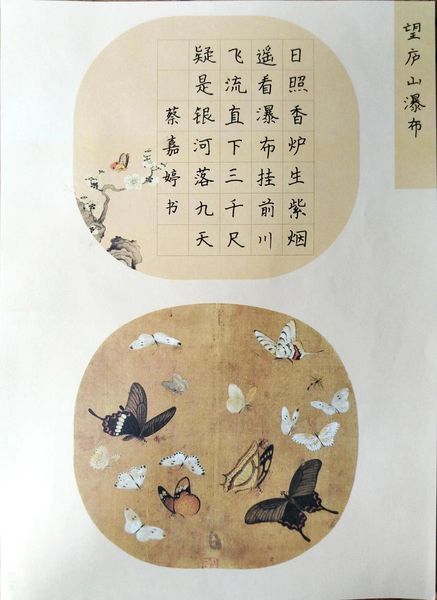 望庐山瀑布
日照香炉生紫烟
遥看瀑布挂前川
飞流直下三千尺
疑是银河落九天
蔡嘉婷书